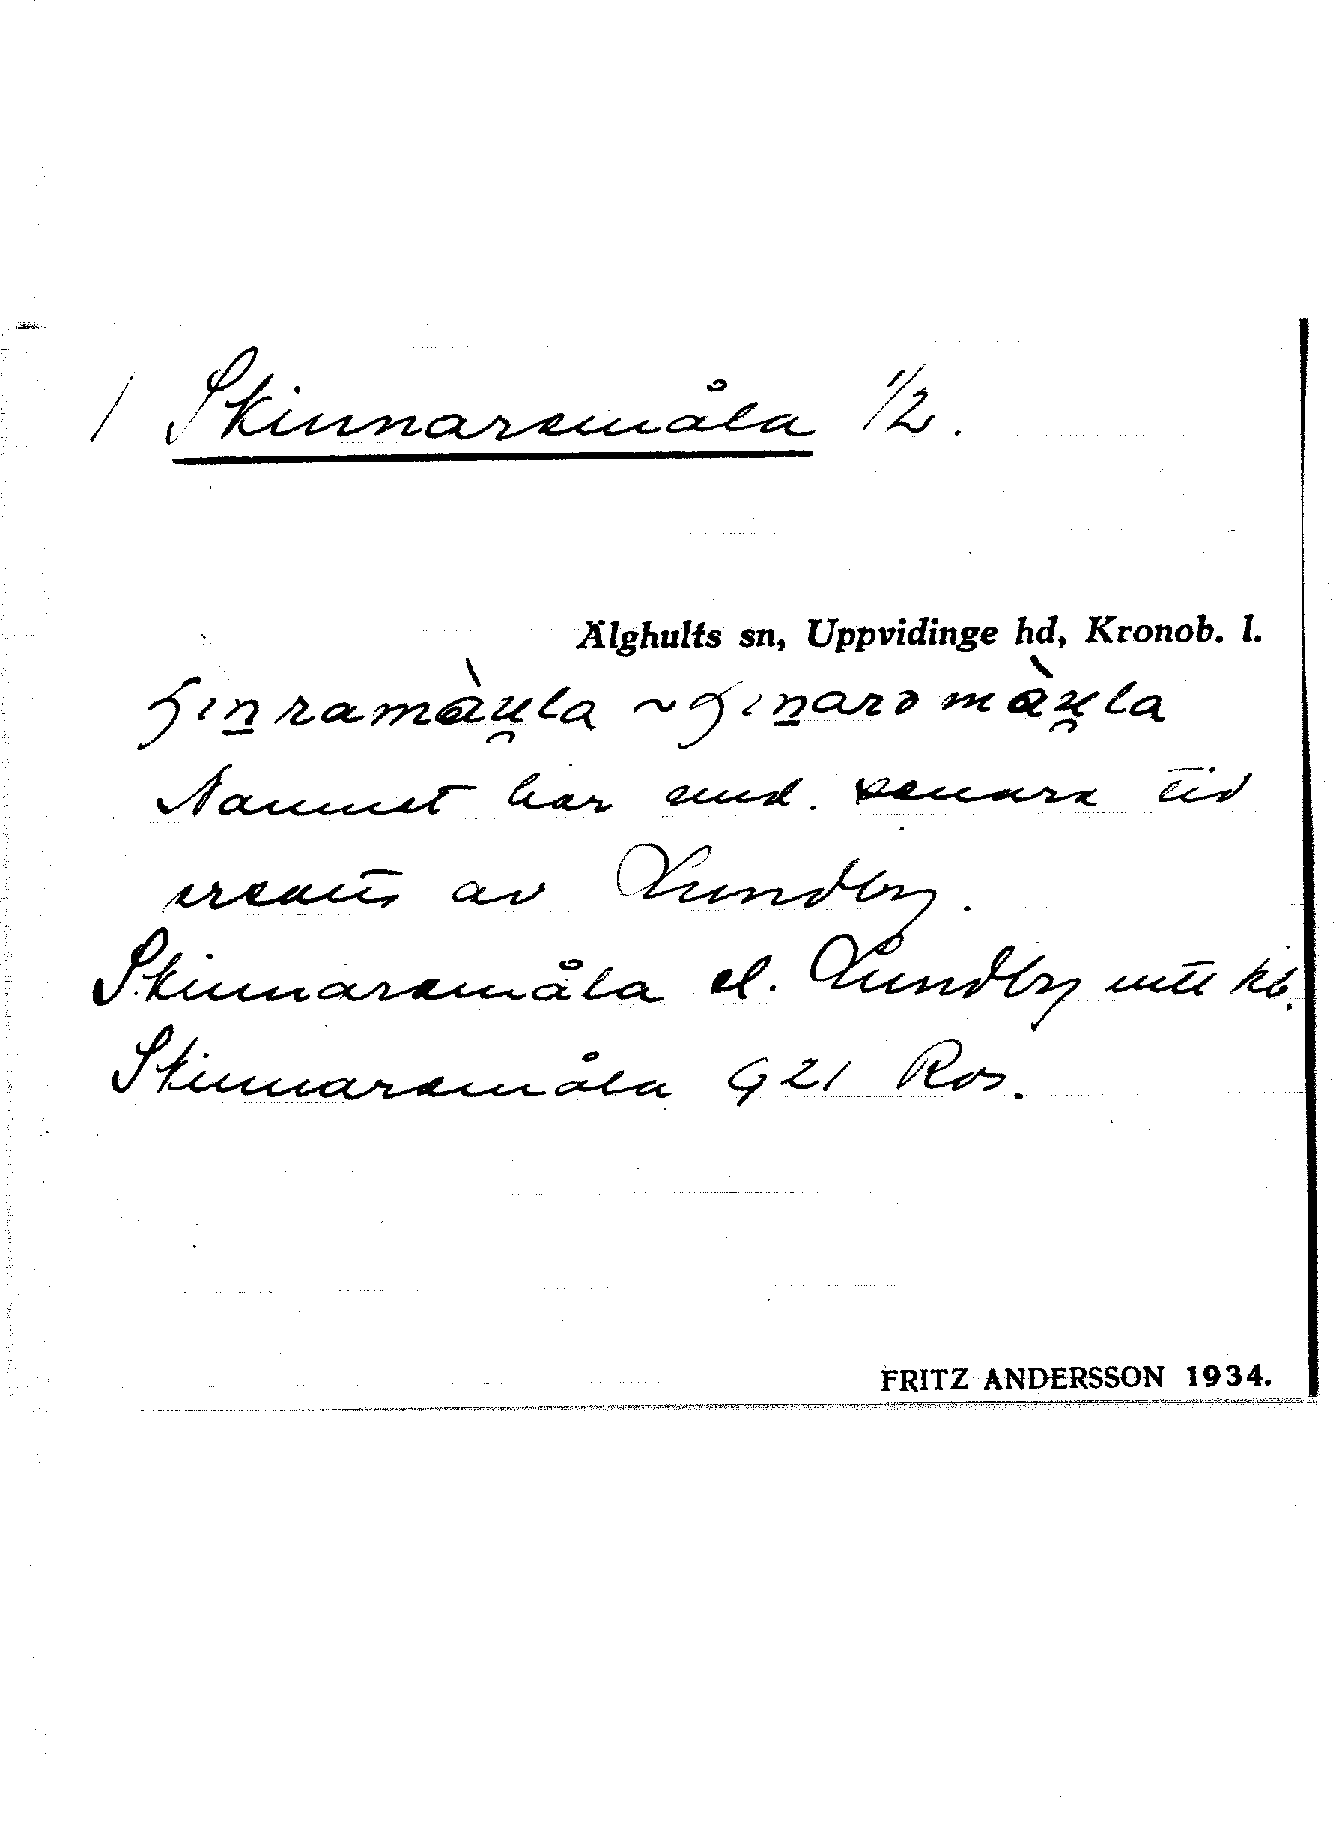 / Skinnaremåla 1/2.
Älghults sn, Uppvidinge hd, Kronob. l.
Namnet har und. senare tid
ersatts av Lundby.
Skinnaremåla el. Lundby utt kb.
Skinnaremåla G21 Ros.
FRITZ ANDERSSON 1934.